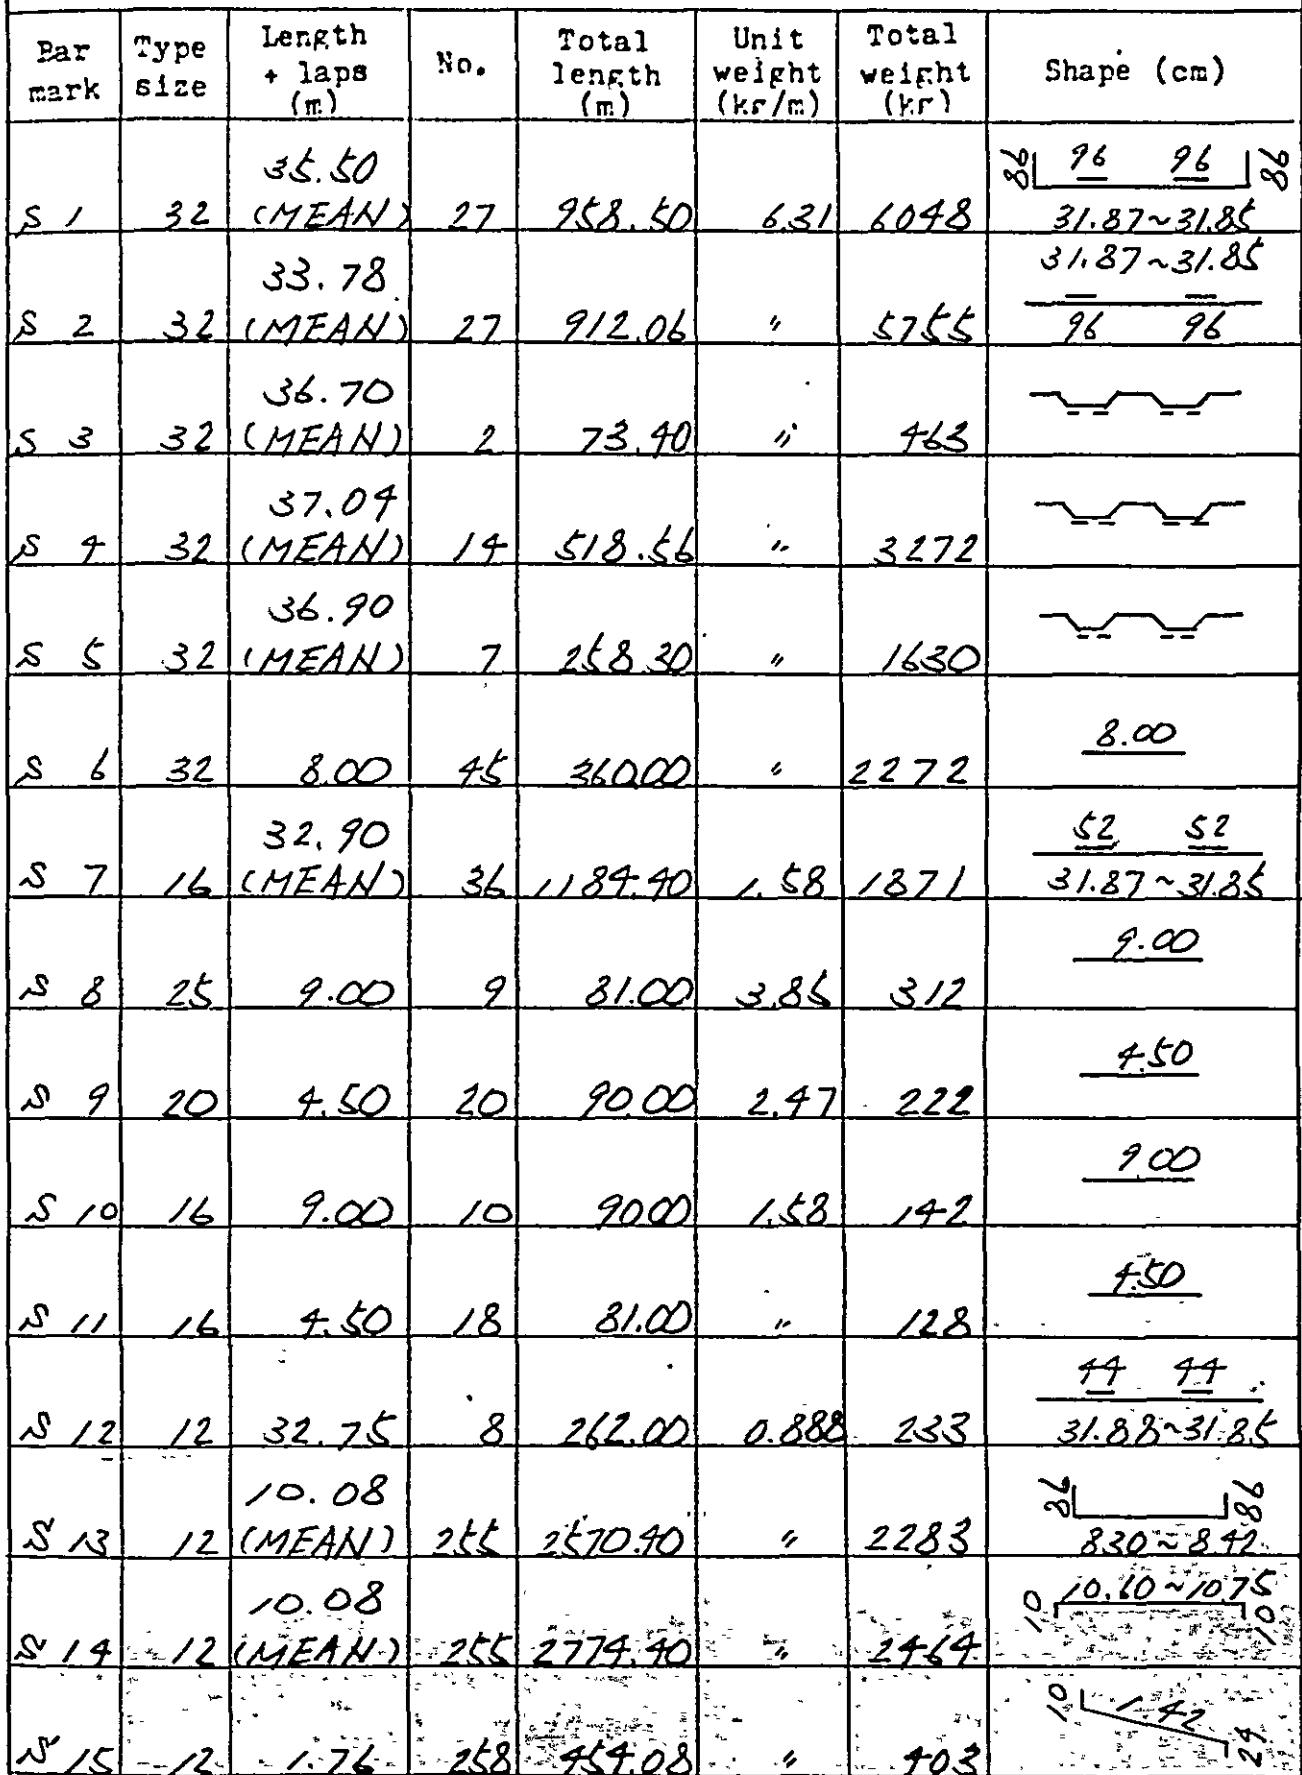 Bar mark Type size Length + laps (m) No. Total length (m) Unit weight (kg/m) Total weight (kg) Shape (cm)
S 1 32 35.50 (MEAN) 27 958.50 6.31 6048 86 96 96 86 31.87~31.85
S 2 32 33.78 (MEAN) 27 912.06 〃 5755 31.87~31.85 96 96
S 3 32 36.70 (MEAN) 2 73.40 〃 463
S 4 32 37.04 (MEAN) 14 518.56 〃 3272
S 5 32 36.90 (MEAN) 7 258.30 〃 1630
S 6 32 8.00 45 360.00 〃 2272 8.00
S 7 16 32.90 (MEAN) 36 1184.40 1.58 1871 52 52 31.87~31.85
S 8 25 9.00 9 81.00 3.85 312 9.00
S 9 20 4.50 20 90.00 2.47 222 4.50
S 10 16 9.00 10 90.00 1.58 142 9.00
S 11 16 4.50 18 81.00 〃 128 4.50
S 12 12 32.75 8 262.00 0.888 233 44 44 31.88~31.85
S 13 12 10.08 (MEAN) 255 2570.40 〃 2283 86 86 8.30~8.42
S 14 12 10.08 (MEAN) 255 2774.40 〃 2464 10 10.60~10.75 10
S 15 12 1.76 258 454.08 〃 403 10 1.42 24